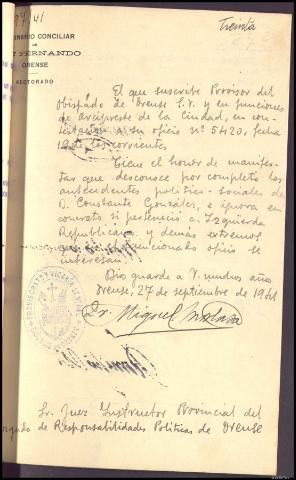 97/41
Treinta
SEMINARIO CONCILIAR
DE
SAN FERNANDO
ORENSE
RECTORADO
El que suscribe Provisor del
Obispado de Orense S.V. y en funciones
de arcipreste de la Ciudad, en con-
testación a su oficio nº 5420, fecha
19 de los corrientes
Tiene el honor de manifes-
tar que desconoce por completo los
antecedentes politico-sociales de
D. Constante González, e ignora en
concreto si perteneció a Izquierda
Republicana y demás extremos
que en mencionado oficio se
interesan.
Dios guarde a V. muchos años
Orense, 27 de septiembre de 1941
Dr. Miguel
Sr. Juez Instructor Provincial del
Juzgado de Responsabilidades Politicas de Orense